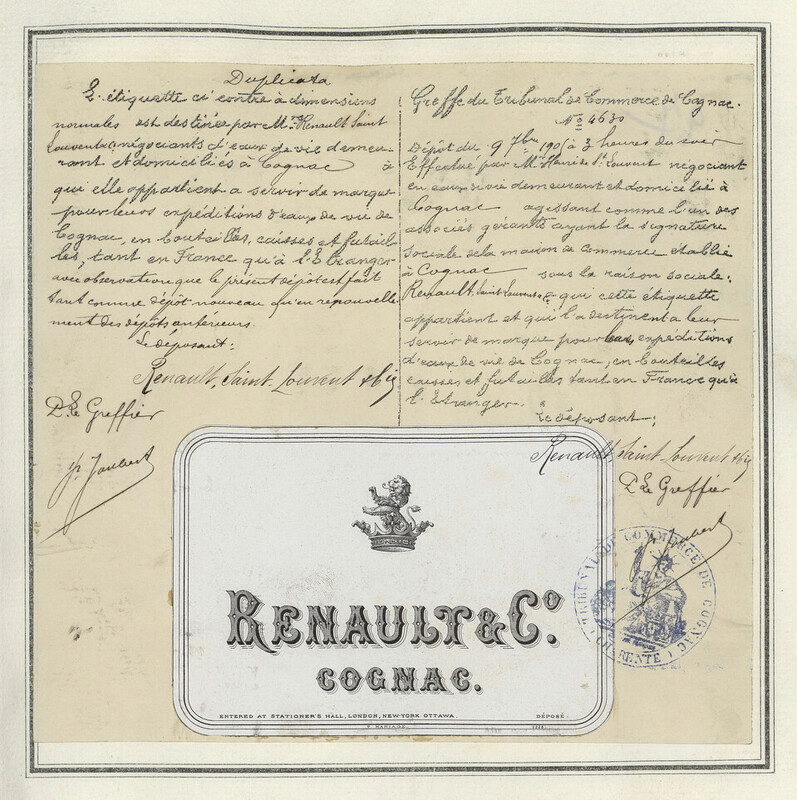 Duplicata
L'étiquette ci contre à dimensions
normales est destinée par Mrs Renault Saint
Louvent & négociants d'eaux de vie demeu-
rant et domiciliés à Cognac à
qui elle appartient a servir de marque
pour leurs expéditions d'eaux de vie de
Cognac, en bouteilles, caisses et futail-
les, tant en France qu'à l'Etranger
avec observation que le présent dépôt est fait
tant comme dépôt nouveau qu'en renouvelle-
ment des dépôts antérieurs.
Le déposant:
Renault, Saint-Louvent & Cie
P. Le Greffier
Joubert
Greffe du Tribunal de Commerce de Cognac.
No 4630
Dépôt du 9 7bre 190 à 3 heures du soir
Effectué par Mr Henri de St Louvent négociant
en eaux de vie demeurant et domicilié à
Cognac agissant comme l'un des
associés gérants ayant la signature
sociale de la maison de Commerce établie
à Cognac sous la raison sociale:
Renault, Saint-Louvent & qui cette étiquette
appartient et qui l'a destinent a leur
servir de marque pour leurs expéditions
d'eaux de vie de Cognac, en bouteilles
caisses et futailles tant en France qu'à
l'Etranger.
Le déposant;
Renault, Saint-Louvent & Cie
P. Le Greffier
Joubert
RENAULT & Co.
COGNAC.
ENTERED AT STATIONER'S HALL, LONDON, NEW-YORK OTTAWA.
DÉPOSÉ.
TRIBUNAL DE COMMERCE DE COGNAC
(CHARENTE)